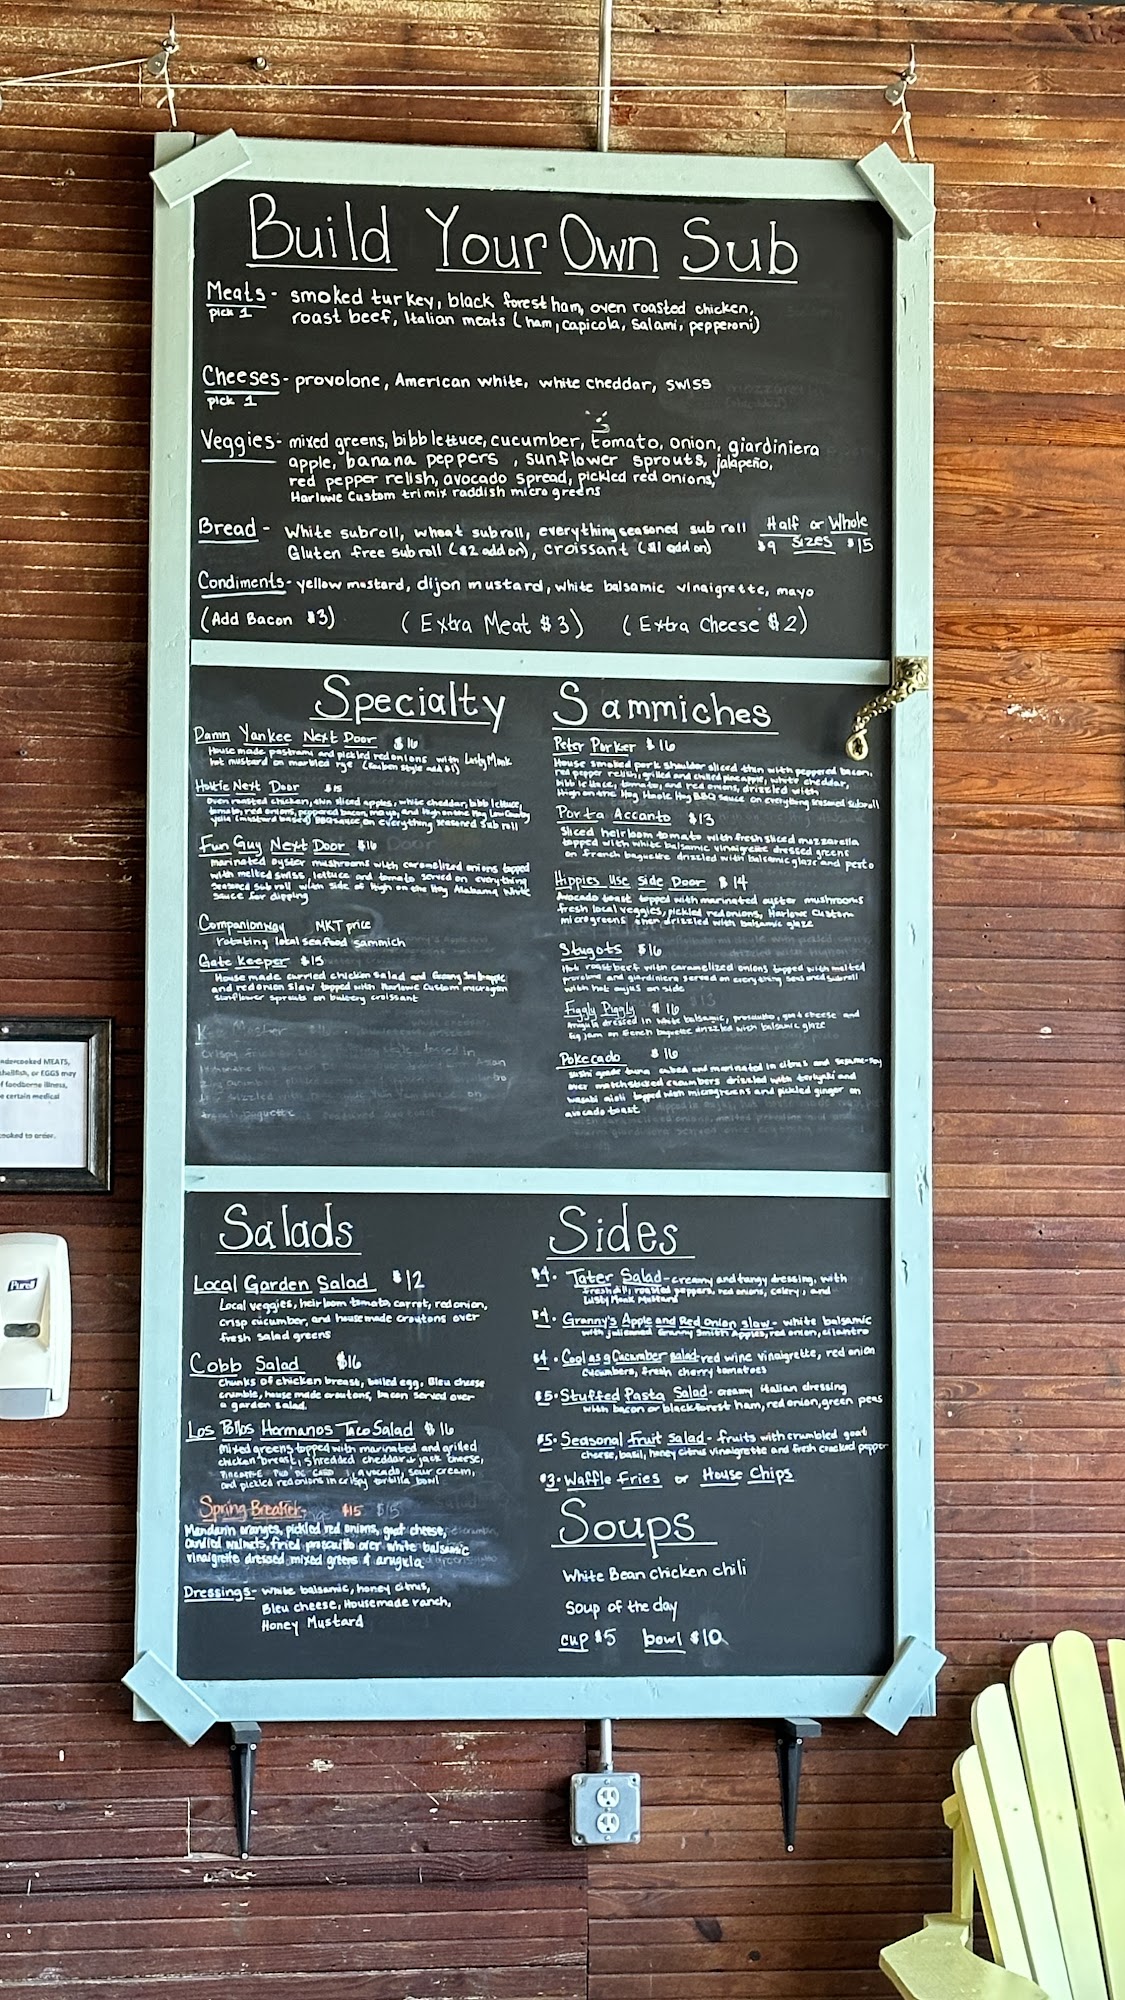 Build Your Own Sub
Meats - smoked turkey, black forest ham, oven roasted chicken,
pick 1 roast beef, Italian meats (ham, capicola, salami, pepperoni)
Cheeses - provolone, American white, white cheddar, swiss
pick 1
Veggies - mixed greens, bibb lettuce, cucumber, tomato, onion, giardiniera
apple, banana peppers, sunflower sprouts, jalapeño,
red pepper relish, avocado spread, pickled red onions,
Harlowe Custom tri mix raddish micro greens
Bread - White subroll, wheat subroll, everything seasoned sub roll Half or Whole
Gluten free sub roll ($2 add on), croissant ($1 add on) $9 Sizes $15
Condiments - yellow mustard, dijon mustard, white balsamic vinaigrette, mayo
(Add Bacon $3) (Extra Meat $3) (Extra Cheese $2)
Specialty Sammiches
Damn Yankee Next Door $16
House made pastrami and pickled red onions with Lusty Monk
hot mustard on marbled rye (Reuben style add $1)
Hottie Next Door $15
oven roasted chicken, thin sliced apples, white cheddar, bibb lettuce,
tomato, red onions, peppered bacon, mayo, and High on the Hog Low Country
(mustard based) BBQ sauce, on everything seasoned sub roll
Fun Guy Next Door $16
marinated oyster mushrooms with caramelized onions topped
with melted swiss, lettuce and tomato served on everything
seasoned sub roll with side of High on the Hog Alabama White
sauce for dipping
Companionway MKT price
rotating local seafood sammich
Gate Keeper $15
House made curried chicken salad and Granny Smith apple
and red onion slaw topped with Harlowe Custom microgreen
sunflower sprouts on buttery croissant
Peter Porker $16
House smoked pork shoulder sliced thin with peppered bacon,
red pepper relish, grilled and chilled pineapple, white cheddar,
bibb lettuce, tomato, and red onions, drizzled with
High on the Hog Hog BBQ sauce on everything seasoned subroll
Porta Accanto $13
Sliced heirloom tomato with fresh sliced mozzarella
topped with white balsamic vinaigrette dressed greens
on french baguette drizzled with balsamic glaze and pesto
Hippies Use Side Door $14
Avocado toast topped with marinated oyster mushrooms
fresh local veggies, pickled red onions, Harlowe Custom
microgreens then drizzled with balsamic glaze
Stugots $16
Hot roast beef with caramelized onions topped with melted
provolone and giardiniera served on everything seasoned subroll
with hot aujus on side
Figgly Piggly $16
Arugula dressed in white balsamic, prosciutto, goat cheese and
fig jam on french baguette drizzled with balsamic glaze
Pokecado $16
sushi grade tuna cubed and marinated in citrus and sesame-soy
over matchsticked cucumbers drizzled with teriyaki and
wasabi aioli topped with microgreens and pickled ginger on
avocado toast
Salads
Local Garden Salad $12
Local veggies, heirloom tomato, carrot, red onion,
crisp cucumber, and housemade croutons over
fresh salad greens
Cobb Salad $16
Chunks of chicken breast, boiled egg, Bleu cheese
crumble, house made croutons, bacon served over
a garden salad.
Los Pollos Hermanos Taco Salad $16
Mixed greens topped with marinated and grilled
chicken breast, shredded cheddar & jack cheese,
avocado, sour cream,
and pickled red onions in crispy tortilla bowl
Spring Breaker $15
Mandarin oranges, pickled red onions, goat cheese,
candied walnuts, fried prosciutto over white balsamic
vinaigrette dressed mixed greens & arugula
Dressings - White balsamic, honey citrus,
Bleu cheese, Housemade ranch,
Honey Mustard
Sides
$4. Tater Salad - creamy and tangy dressing, with
fresh dill, roasted peppers, red onions, celery, and
Lusty Monk Mustard
$4. Granny's Apple and Red Onion slaw - white balsamic
with julienned Granny Smith Apples, red onion, cilantro
$4. Cool as a Cucumber salad - red wine vinaigrette, red onion
cucumbers, fresh cherry tomatoes
$5. Stuffed Pasta Salad - creamy italian dressing
with bacon or black forest ham, red onion, green peas
$5. Seasonal Fruit Salad - fruits with crumbled goat
cheese, basil, honey citrus vinaigrette and fresh cracked pepper
$3. Waffle Fries or House Chips
Soups
White Bean chicken chili
Soup of the day
cup $5 bowl $10
undercooked MEATS,
shellfish, or EGGS may
of foodborne illness,
certain medical
cooked to order.
Purell